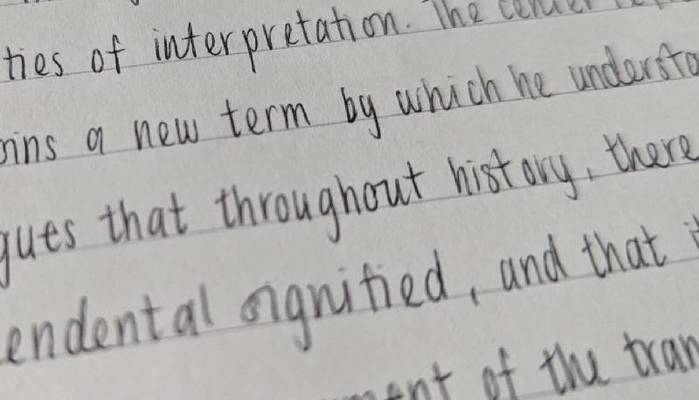 ties of interpretation. The center
oins a new term by which he understo
gues that throughout history, there
endental signified, and that i
ment of the tran